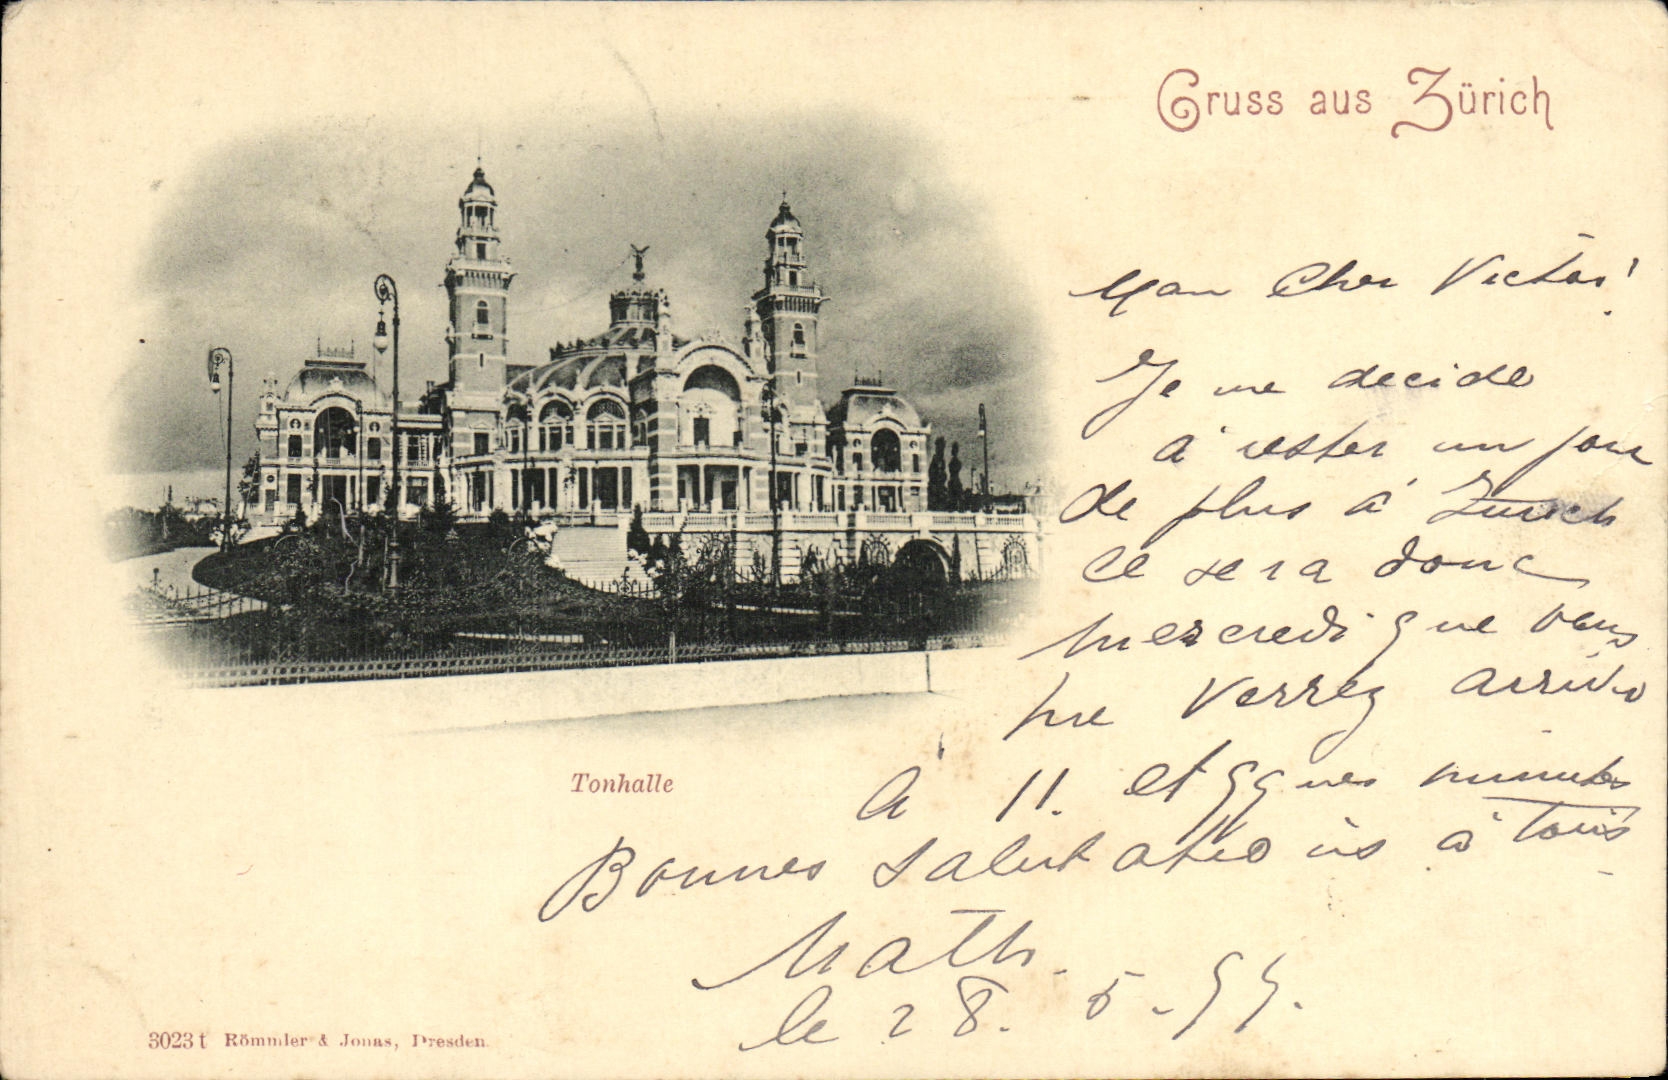 Gruss aus Zürich
Mon Cher Victor!
Je me decide
à rester un jour
de plus à Zurich
ce sera donc
mercredi que vous
me verrez arriver
à 11. et qques minutes
Bonnes salutations à tous
Math.
le 28. 5. 99.
Tonhalle
3023 t Römmler & Jonas, Dresden.